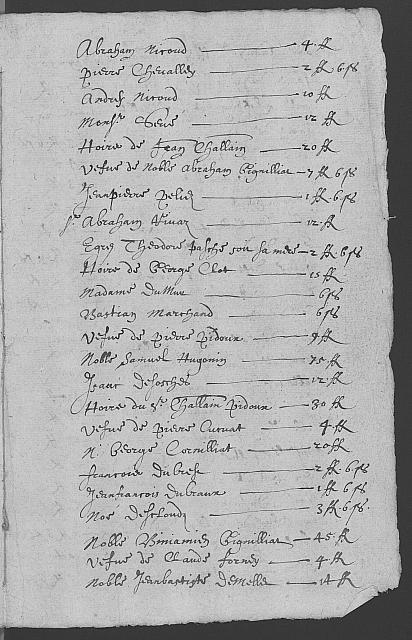 Abraham Nicoud — 4 ff
Pierre Chevalley — 2 ff 6 fs
André Nicoud — 10 ff
Mons.r — 12 ff
Hoire de Jean Challain — 20 ff
Vefue de Noble Abraham Gignilliat — 7 ff 6 fs
Jeanpierre — 1 ff 6 fs
S.r Abraham Vivar — 12 ff
Egrég Théodore Pasche sa mere — 2 ff 6 fs
Hoire de George Clot — 15 ff
Madame DuMur — 6 fs
Bastian Marchand — 6 fs
Vefue de Pierre Pidoux — 9 ff
Noble Samuel Hugonin — 75 ff
Isaac Desosches — 12 ff
Hoire du S.r Challain Pidoux — 30 ff
Vefue de Pierre Cucuat — 4 ff
N. George Cornilliat — 20 ff
francois dubresi — 2 ff 6 fs
Jeanfrancois Dubraux — 1 ff 6 fs
Noé — 3 ff 6 fs.
Noble Biniamin Gignilliat — 45 ff
Vefue de Claude forney — 4 ff
Noble Jeanbastiste DeMelle — 14 ff